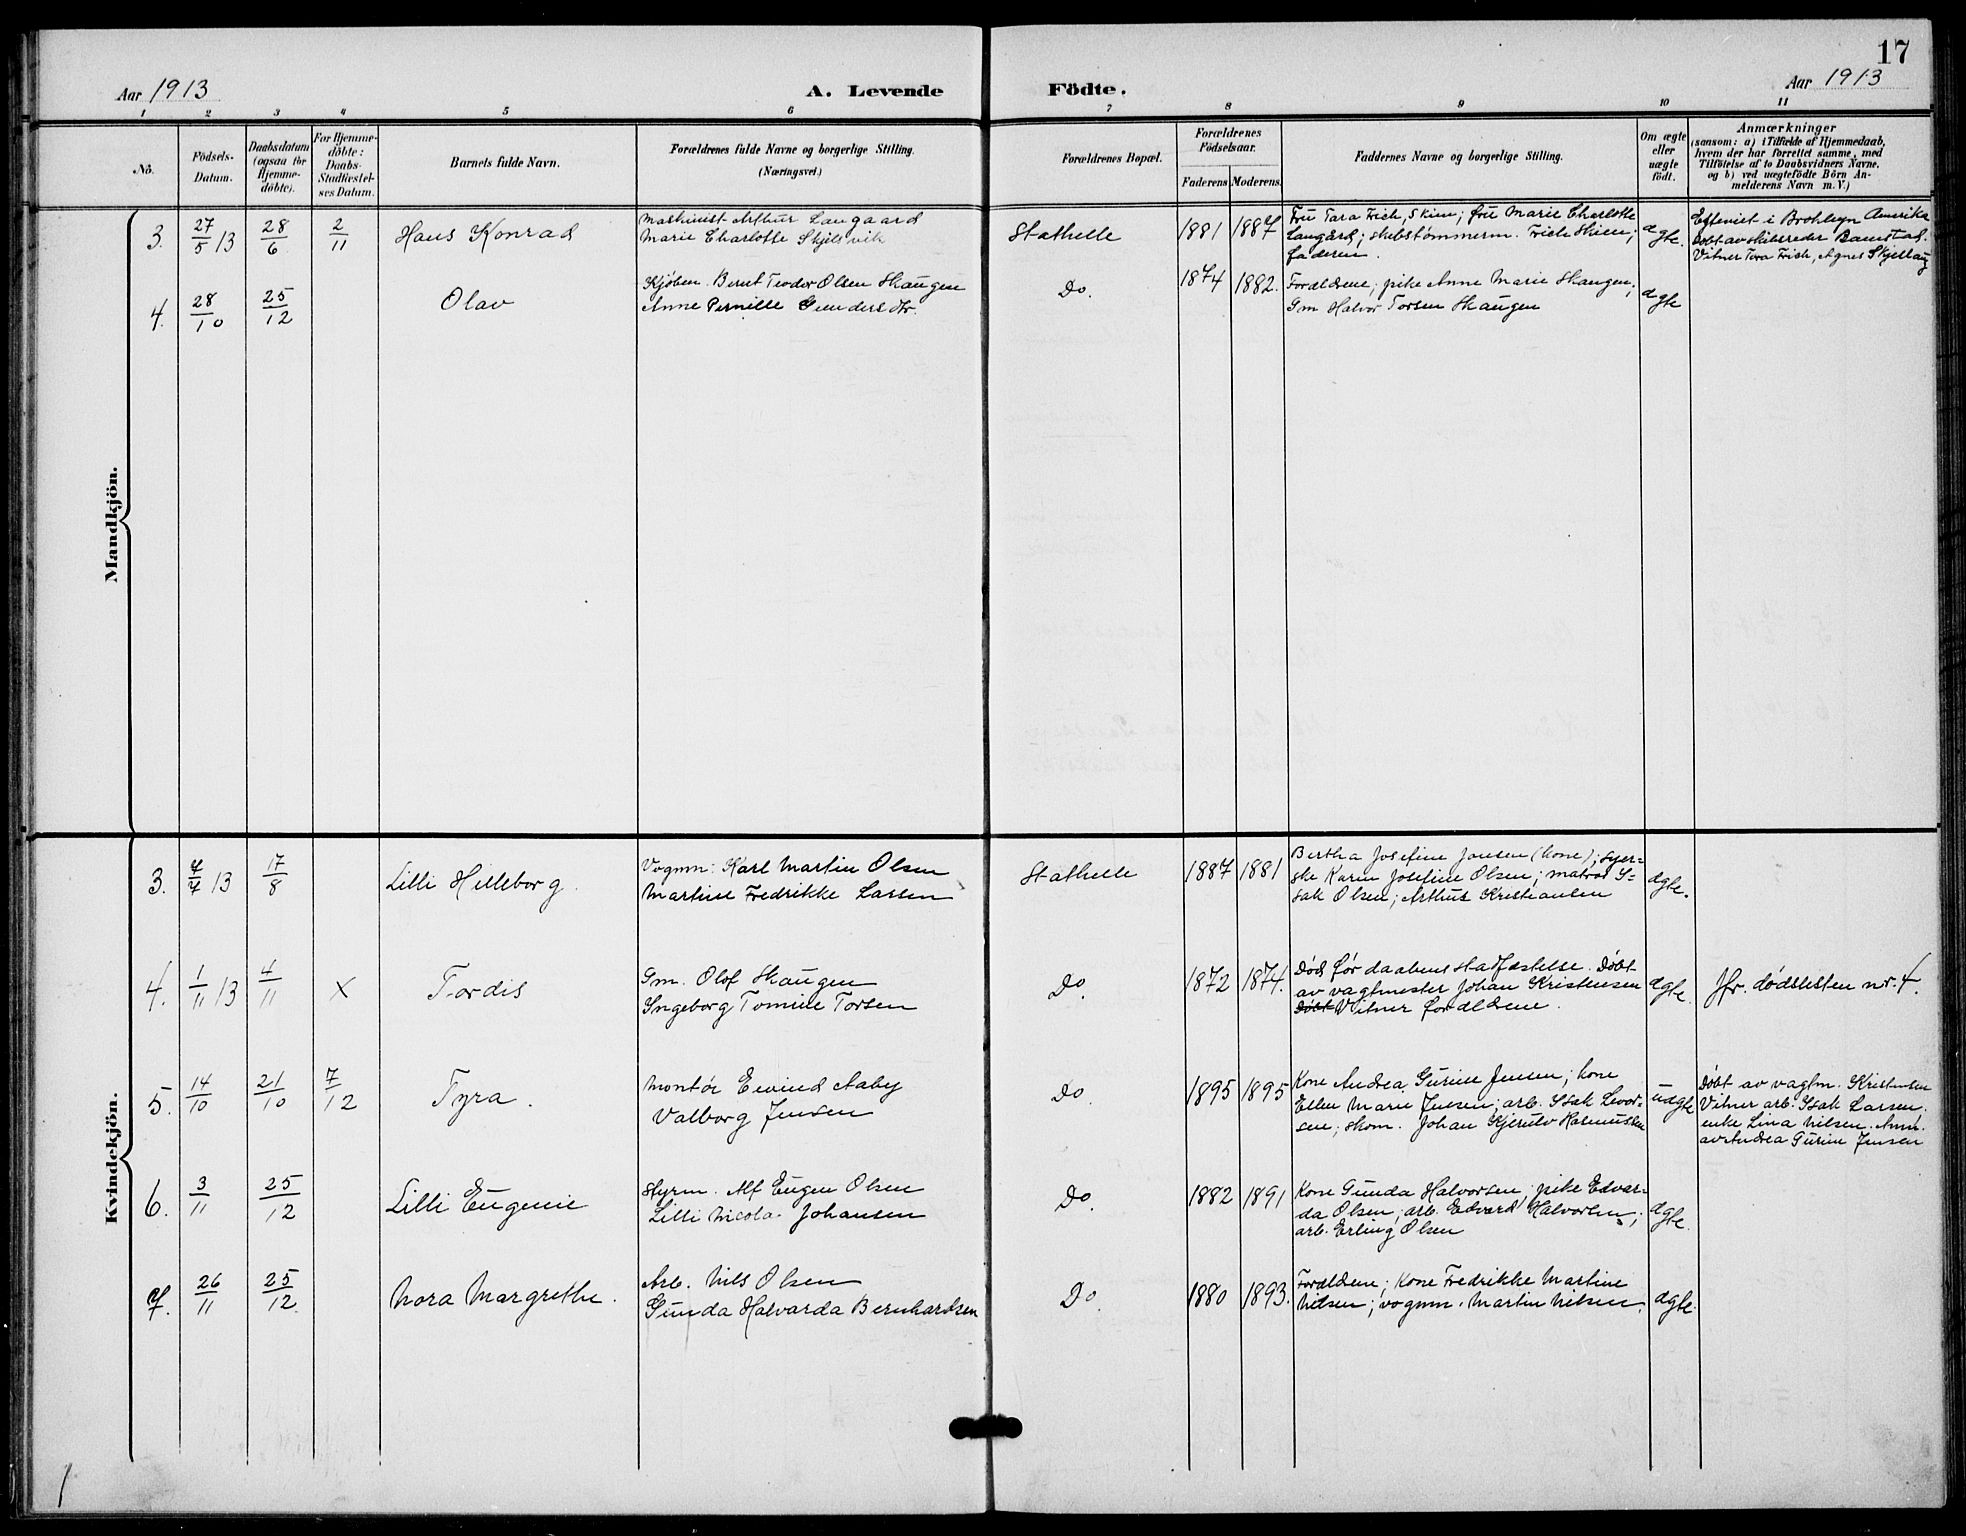 17
Aar 1913
A. Levende
Födte.
Aar 1913
1 2 3 4 5 6 7 8 9 10 11
No.
Födsels-
Datum.
Daabsdatum
(ogsaa for
Hjemme-
döbte).
For Hjemme-
döbte:
Daabs-
Stadfæstel-
ses Datum.
Barnets fulde Navn.
Forældrenes fulde Navne og borgerlige Stilling.
(Næringsvei.)
Forældrenes Bopæl.
Forældrenes
Födselsaar.
Faderens Moderens.
Faddernes Navne og borgerlige Stilling.
Om ægte
eller
uægte
födt.
Anmærkninger
(saasom: a) i Tilfælde af Hjemmedaab,
hvem der har forrettet samme, med
Tilföielse af to Daabsvidners Navne,
og b) ved uægtefödte Börn An-
melderens Navn m. V.)
Mandkjön.
3. 27/5 13 28/6 2/11
Hans Konrad
Maskinist Arthur Langaard
Marie Charlotte Skjelsvik
Stathelle
1881 1887
Fru Tara Frich, Skien; fru Marie Charlotte
Langård; skibstømmerm. Frich Skien;
faderen.
ægte.
Efterviet i Brohlyn Amerika
Døbt av skibsreder Bamstad.
Vitner Tora Frich, Agnes Skjellaug
4. 28/10 25/12
Olav
Kjøbm. Bernt Teodor Olsen Skaugen
Anne Pernille Gundersdtr.
Do.
1874 1882.
Forældrene; pike Anne Marie Skaugen;
Gm Halvor Torsen Skaugen
ægte
Kvindekjön.
3. 7/7 13 17/8
Lilli Hilleborg.
Vognm: Karl Martin Olsen
Martine Fredrikke Larsen
Stathelle
1887 1881
Bertha Josefine Jansen (kone); syer=
ske Karen Josefine Olsen; matros I=
sak Olsen; Arthur Kristiansen
ægte.
4. 1/11 13 4/11 X
Tordis
Gm. Olof Skaugen
Ingeborg Tomine Torsen
Do.
1872 1874.
Død før daabens stadfæstelse. Døbt
av vagtmester Johan Kristensen
Døbt Vitner forældrene.
ægte.
Jfr. dødslisten nr. 4.
5. 14/10 21/10 7/12
Tyra.
Montør Eivind Aaby
Valborg Jensen
Do.
1895 1895
Kone Andrea Gurine Jensen; kone
Ellen Marie Jensen; arb. Isak Levor=
sen; skom. Johan Kjerulv Rasmussen
uægte
Døbt av vagtm. Kristensen
Vitner arb. Isak Larsen.
enke Lina Nilsen. Anm.
av Andrea Gurine Jensen
6. 3/11 25/12
Lilli Eugenie
Styrm. Alf Eugen Olsen
Lilli Nicola. Johansen
Do.
1882 1891
Kone Gunda Halvorsen; pike Edvar=
da Olsen; arb. Edvard Halvorsen;
arb. Erling Olsen
ægte.
7. 26/11 25/12.
Nora Margrethe.
Arb. Nils Olsen
Gunda Halvarda Bernhardsen
Do.
1880 1893.
Forældrene; Kone Fredrikke Martine
Nilsen; vognm. Martin Nilsen.
ægte.